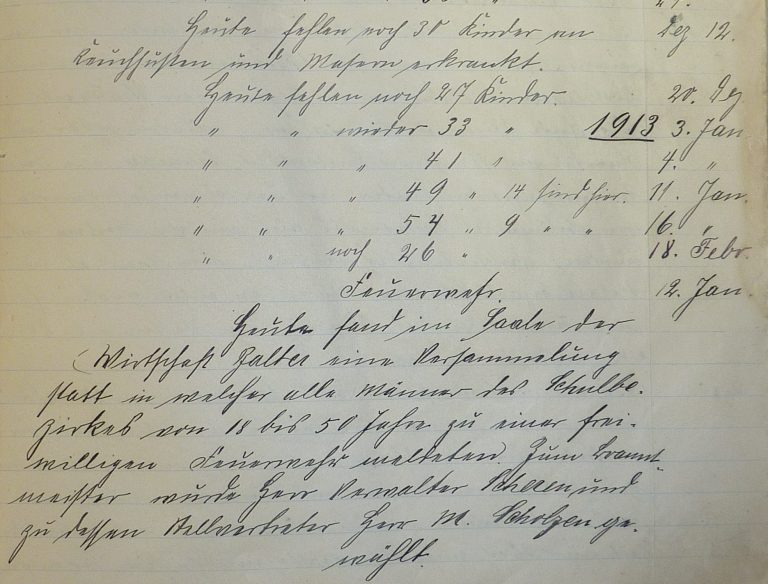 Heute fehlen noch 30 Kinder an Dez 12.
Keuchhusten und Masern erkrankt.
Heute fehlen noch 27 Kinder. 20. Dez
" " wieder 33 " 1913 3. Jan
" " " 41 " 4. "
" " " 49 " 14 sind hier. 11. Jan.
" " " 54 " 9 " " 16. "
" " noch 26 " 18. Febr.
Feuerwehr. 12. Jan.
Heute fand im Saale der
Wirtschaft Halter eine Versammelung
statt in welcher alle Männer des Schulbe-
zirkes von 18 bis 50 Jahre zu einer frei-
willigen Feuerwehr meldeten. Zum Brannt-
meister wurde Herr Verwalter Scheren und
zu dessen Stellvertreter Herr M. Scholzen ge-
wählt.